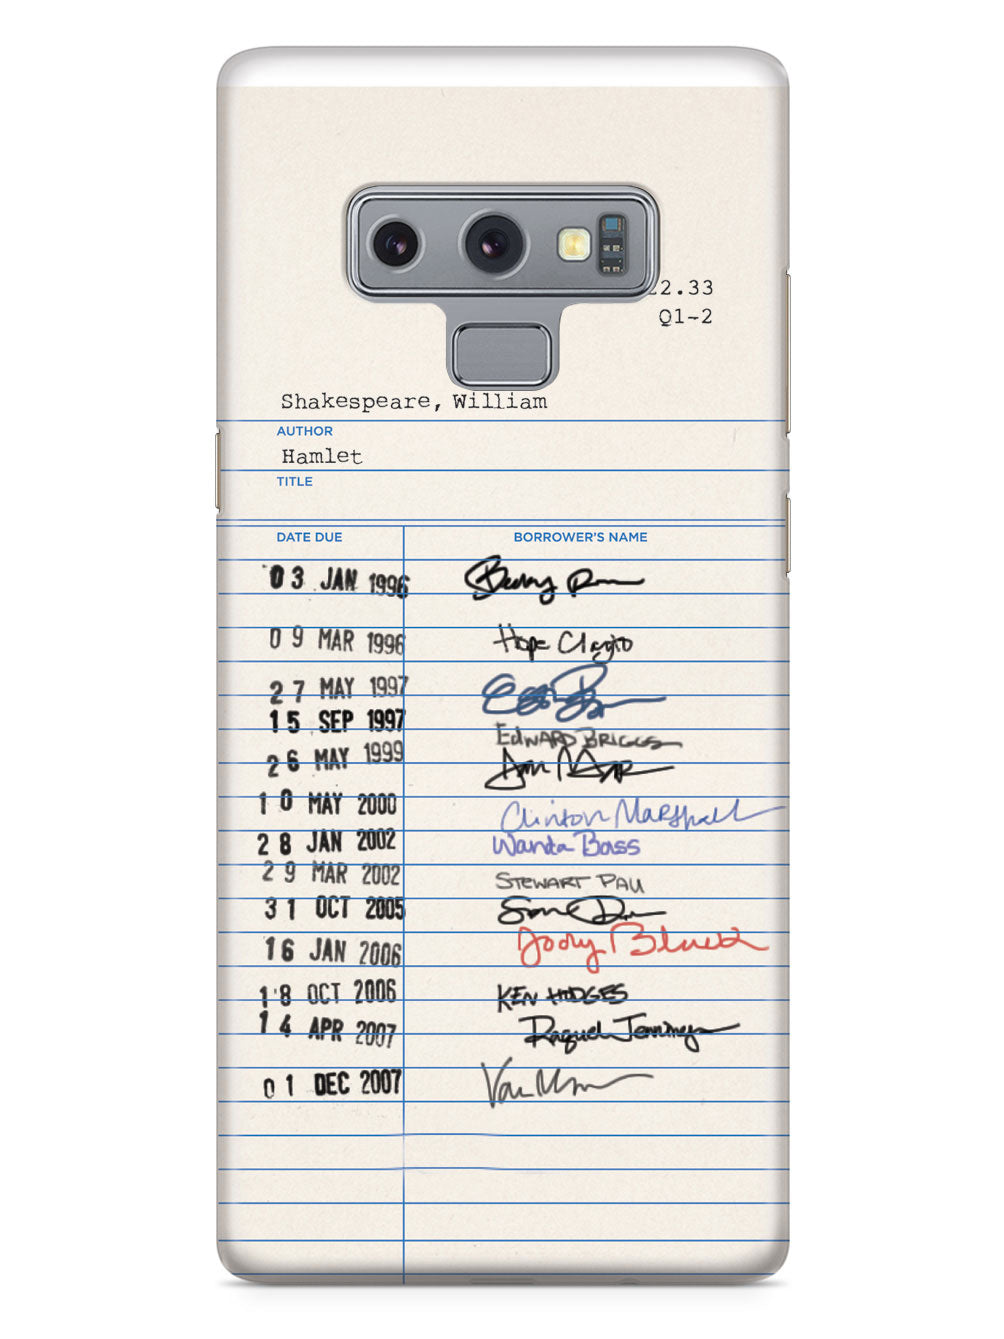 2.33
Q1-2
Shakespeare, William
AUTHOR
Hamlet
TITLE
DATE DUE BORROWER'S NAME
03 JAN 1996
09 MAR 1996 Hope Clayto
27 MAY 1997
15 SEP 1997 EDWARD BRIGGS
26 MAY 1999
10 MAY 2000 Clinton Marshall
28 JAN 2002 Wanda Bass
29 MAR 2002 STEWART PAU
31 OCT 2005
16 JAN 2006 Jody Black
18 OCT 2006 KEN HODGES
14 APR 2007 Raquel Jennings
01 DEC 2007